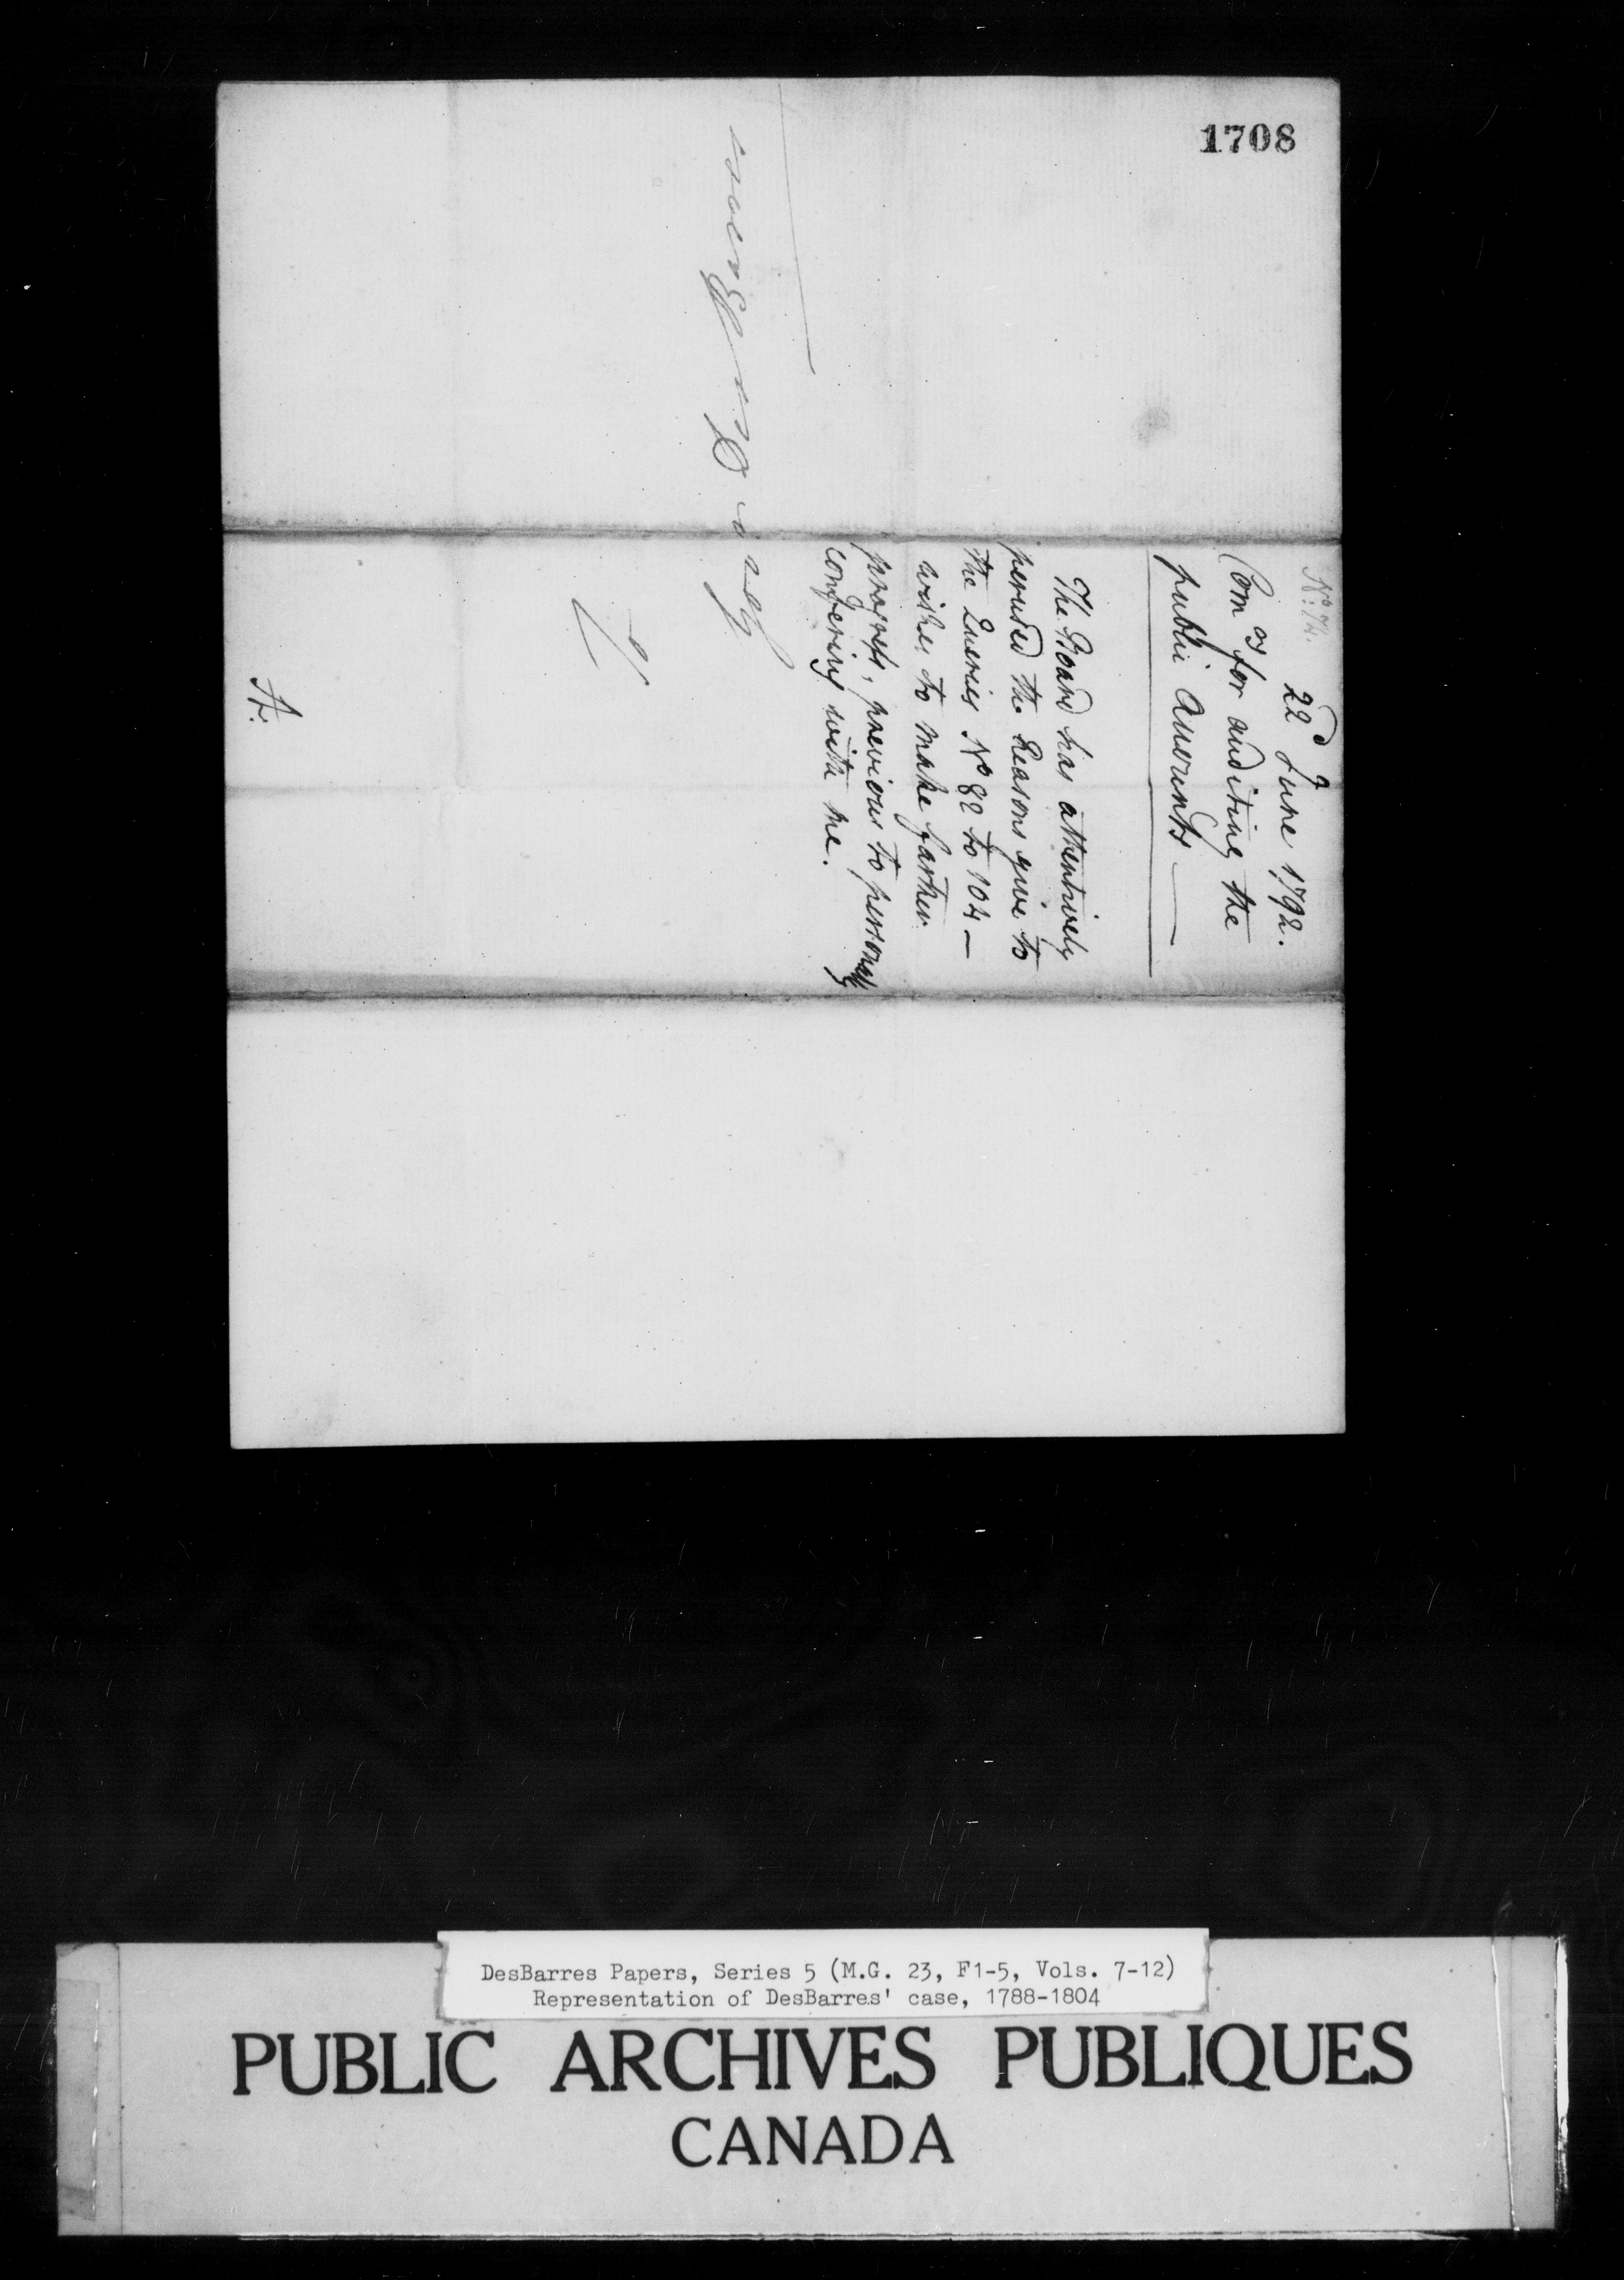 1708
No. 74.
22d June 1792.
Comrs for auditing the
public Accounts —
The Board has attentively
perused the Reasons give to
the Queries No 82 to 104 —
wishes to make farther
progress, previous to personally
confering with me.
Govr DesBarres
A.
DesBarres Papers, Series 5 (M.G. 23, F1-5, Vols. 7-12)
Representation of DesBarres' case, 1788-1804
PUBLIC ARCHIVES PUBLIQUES
CANADA